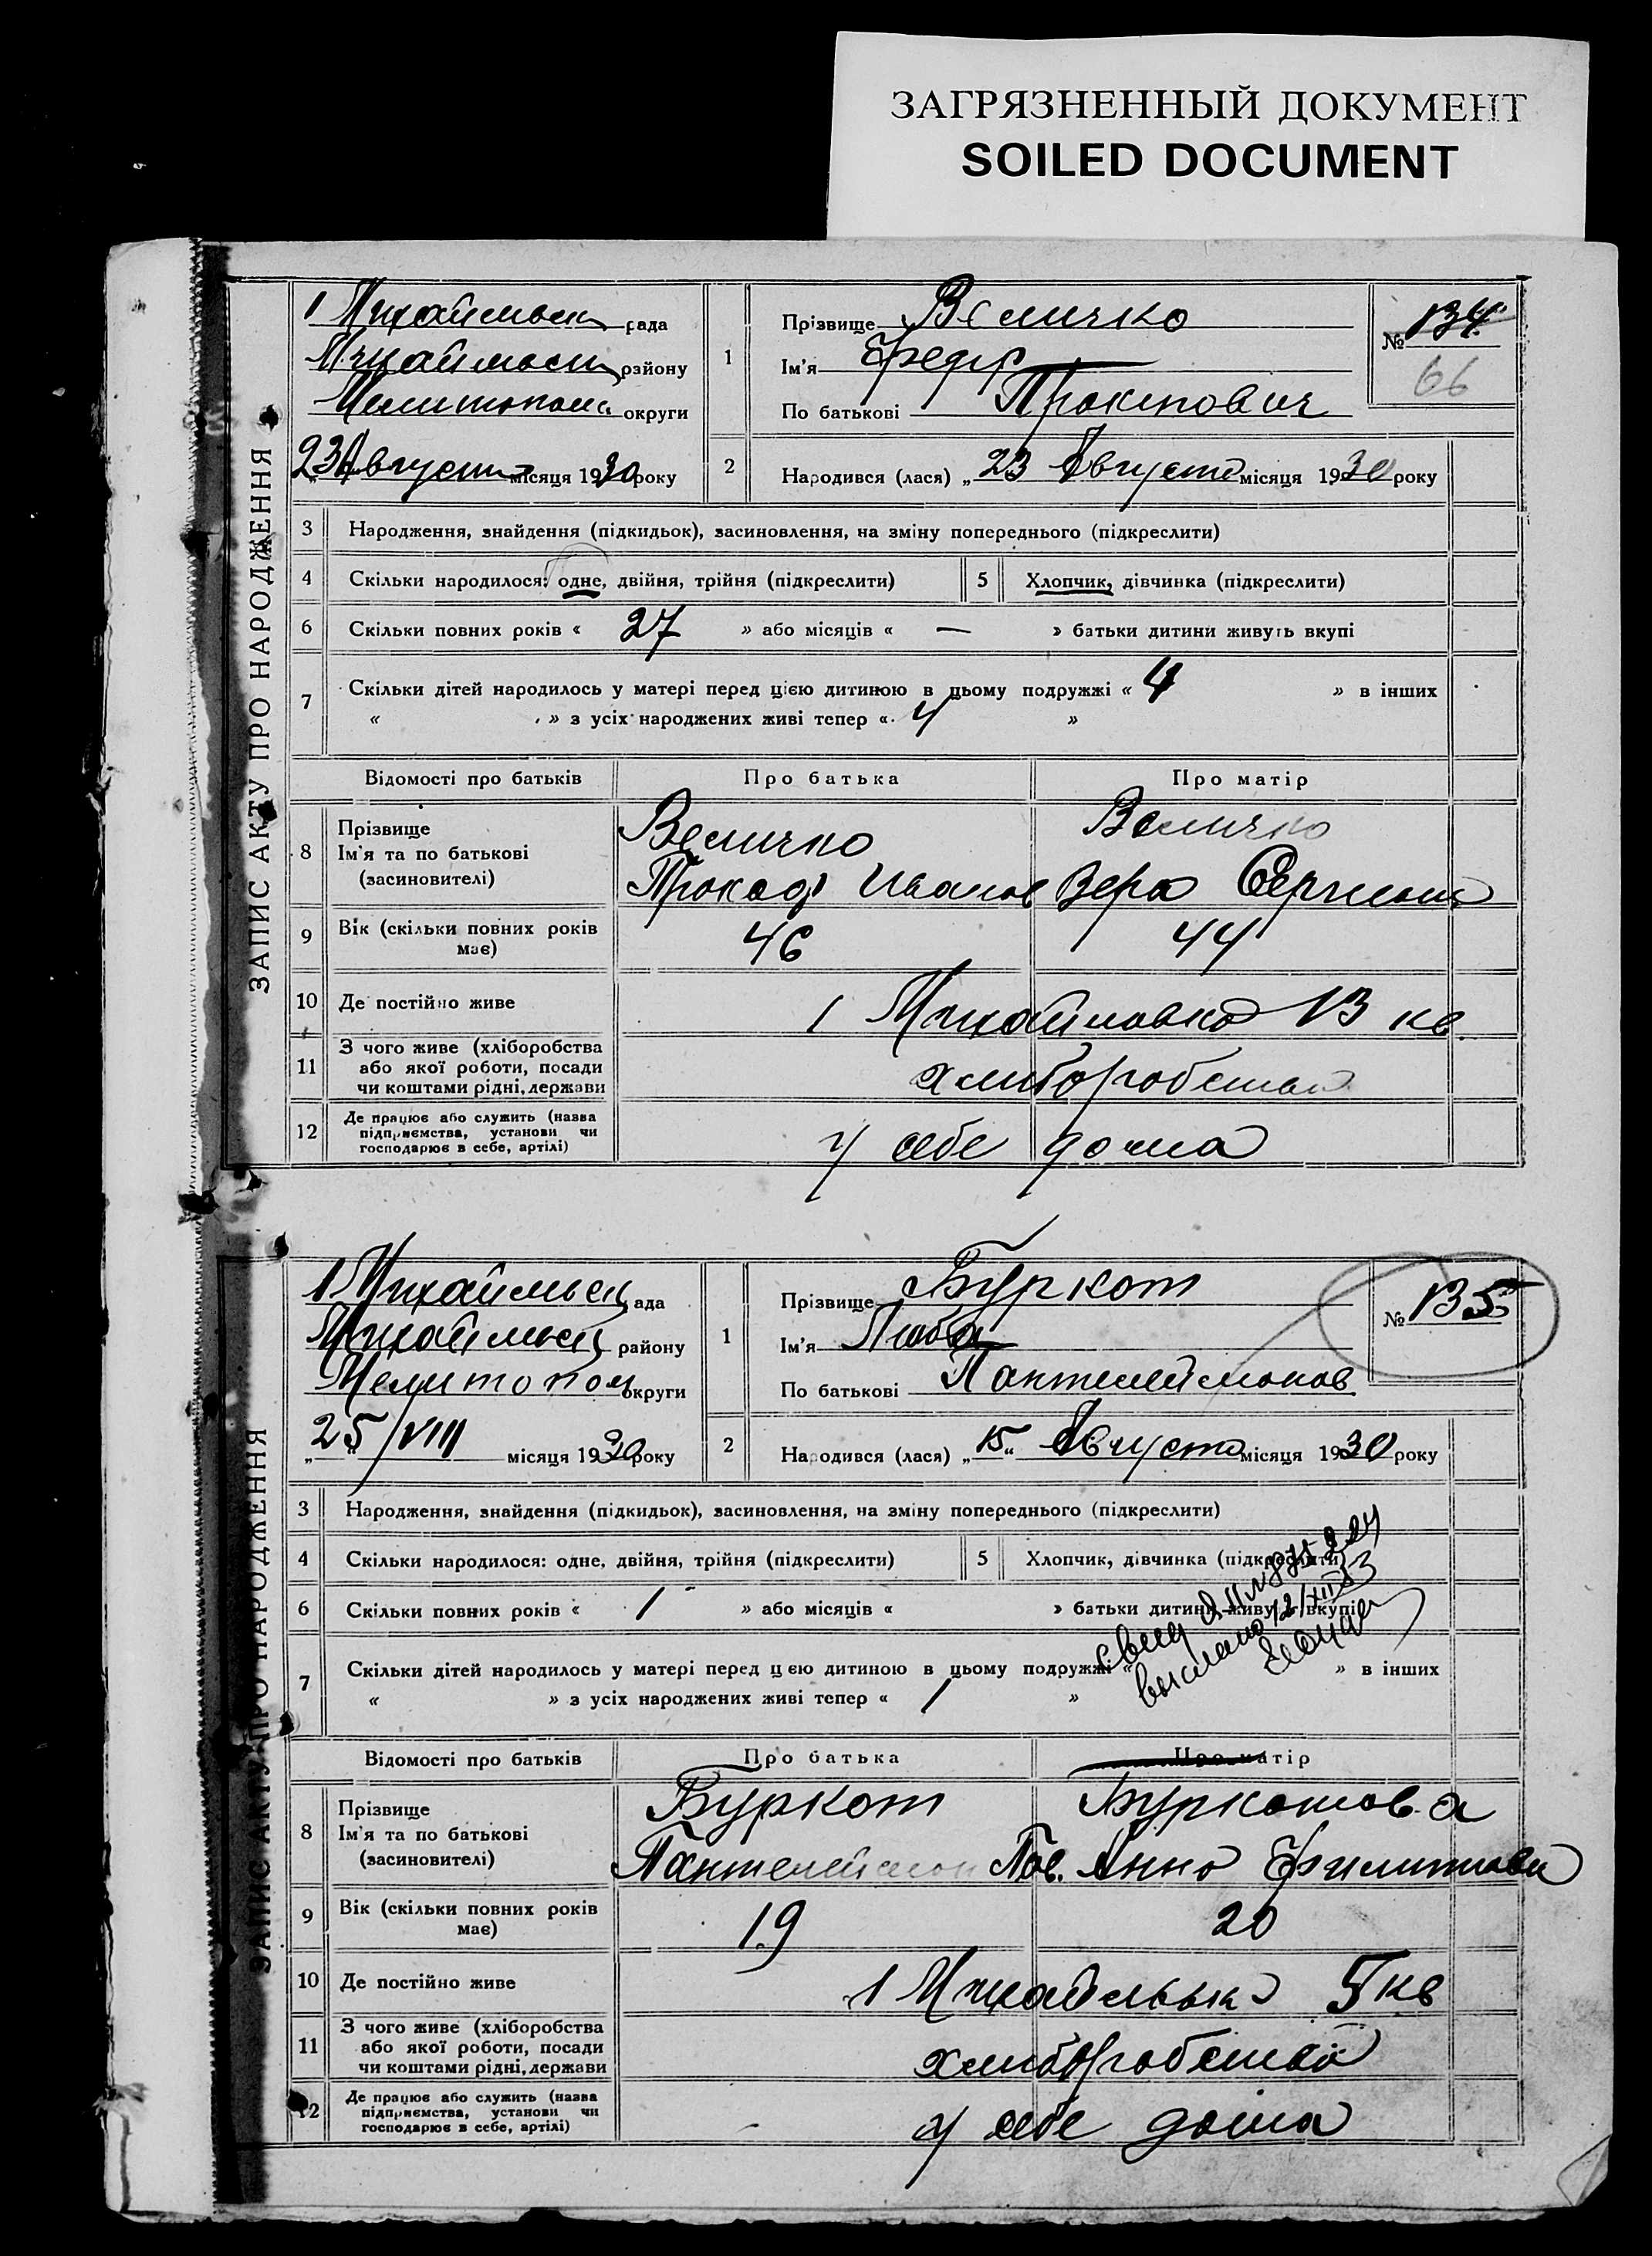 ЗАГРЯЗНЕННЫЙ ДОКУМЕНТ
SOILED DOCUMENT
ЗАПИС АКТУ ПРО НАРОДЖЕННЯ
1 Михайльськ рада
Михайльськ району
Мелитополь округи
23 Августа місяця 1930 року
1
Прізвище Величко
Ім'я Федір
По батькові Прокипович
№ 134
66
2
Народився (лася) „23 Августа місяця 1930 року
3 Народження, знайдення (підкидьок), засиновлення, на зміну попереднього (підкреслити)
4 Скільки народилося: одне, двійня, трійня (підкреслити) 5 Хлопчик, дівчинка (підкреслити)
6 Скільки повних років « 27 » або місяців « — » батьки дитини живуть вкупі
7 Скільки дітей народилось у матері перед цією дитиною в цьому подружжі « 4 » в інших
« » з усіх народжених живі тепер « 4 »
Відомості про батьків Про батька Про матір
8 Прізвище
Ім'я та по батькові
(засиновителі)
Величко
Прокоф Иванов
Величко
Вера
9 Вік (скільки повних років
має)
46 44
10 Де постійно живе 1 Михайловка 13 кв.
11 З чого живе (хліборобства
або якої роботи, посади
чи коштами рідні, держави
хлиборобством
12 Де працює або служить (назва
підприємства, установи чи
господарює в себе, артілі)
у себе дома
ЗАПИС АКТУ ПРО НАРОДЖЕННЯ
1 Михайльськ рада
Михайльськ району
Мелитопол округи
„25/VIII місяця 1930 року
1
Прізвище Буркот
Ім'я Люба
По батькові Пантелеймонов
№ 135
2
Народився (лася) „15„ Августа місяця 1930 року
3 Народження, знайдення (підкидьок), засиновлення, на зміну попереднього (підкреслити)
4 Скільки народилося: одне, двійня, трійня (підкреслити) 5 Хлопчик, дівчинка (підкреслити)
6 Скільки повних років « 1 » або місяців « » батьки дитини живуть вкупі
7 Скільки дітей народилось у матері перед цією дитиною в цьому подружжі « » в інших
« » з усіх народжених живі тепер « 1 »
выслано 12/XII 53
Відомості про батьків Про батька Про матір
8 Прізвище
Ім'я та по батькові
(засиновителі)
Буркот
Пантелеймон Пав.
Буркотова
Анна Филиппова
9 Вік (скільки повних років
має)
19 20
10 Де постійно живе 1 Михайлівка 5 кв
11 З чого живе (хліборобства
або якої роботи, посади
чи коштами рідні, держави
хлиборобством
12 Де працює або служить (назва
підприємства, установи чи
господарює в себе, артілі)
у себе дома